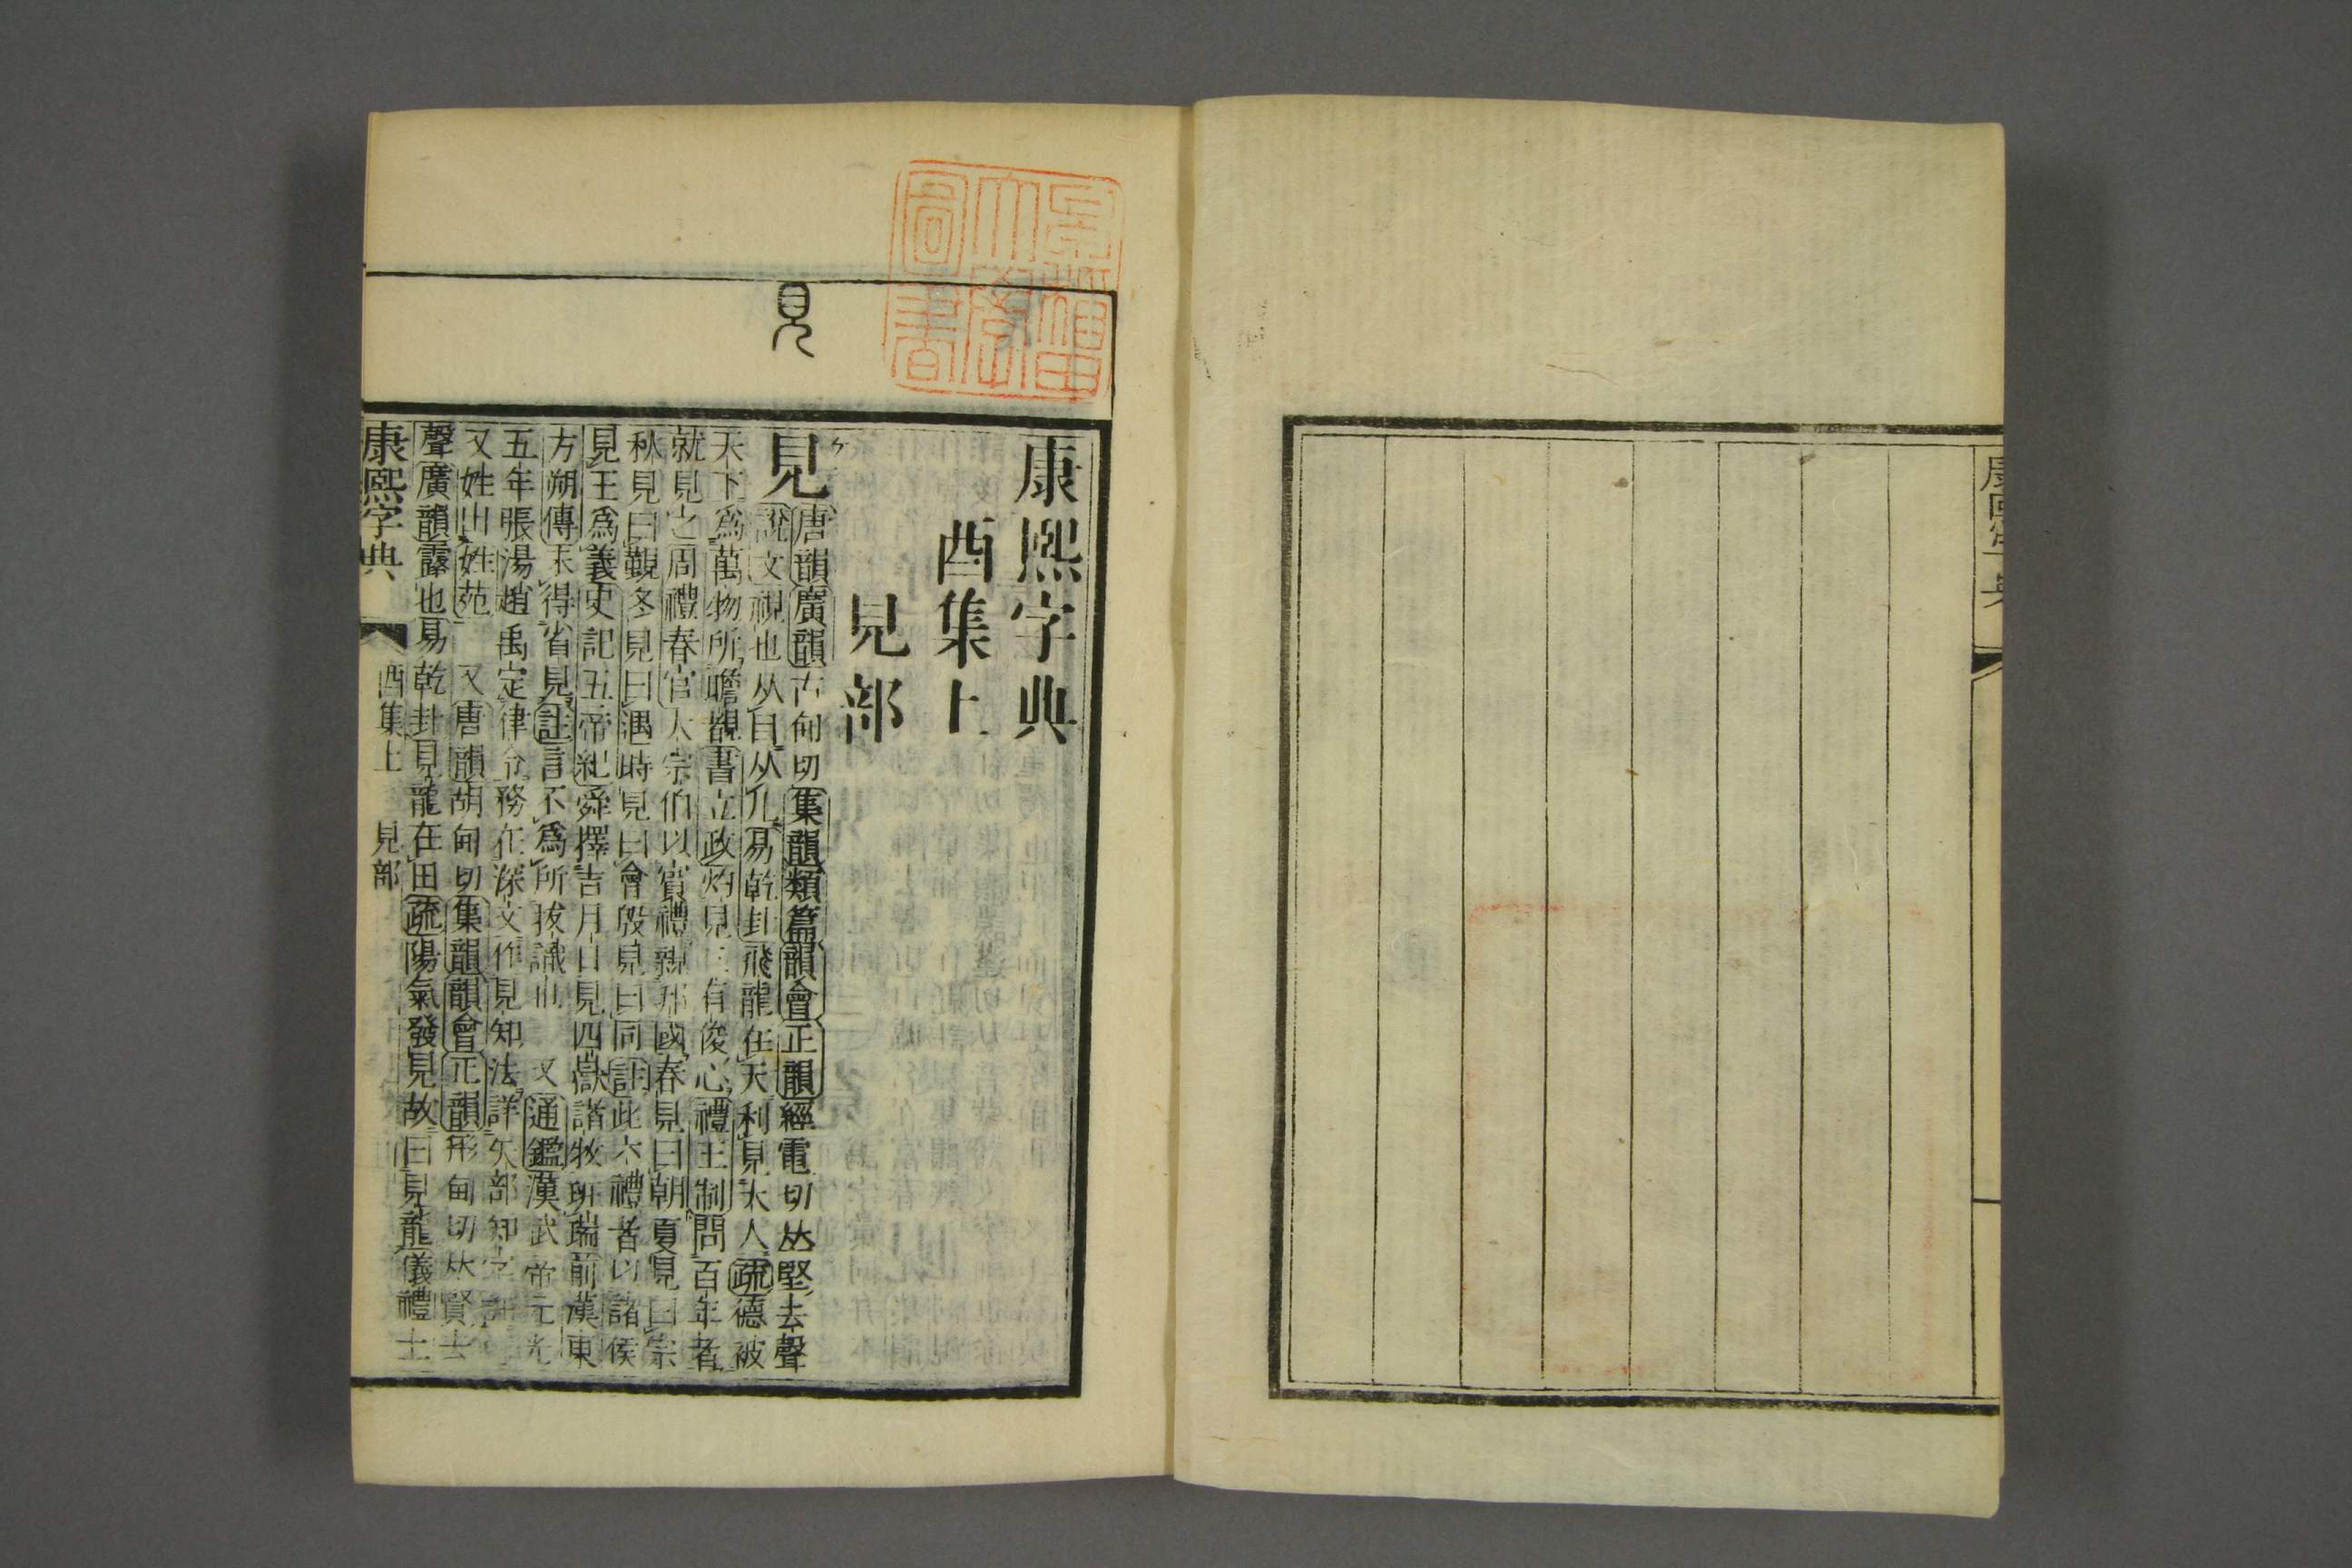 康熙字典
酉集上
見部
見
見唐韻廣韻古甸切集韻類篇韻會正韻經電切𠀤堅去聲
說文視也从目从儿易乾卦飛龍在天利見大人疏德被
天下爲萬物所瞻覩書立政灼見三有俊心禮王制問百年者
就見之周禮春官大宗伯以賓禮親邦國春見曰朝夏見曰宗
秋見曰覲冬見曰遇時見曰會殷見曰同註此六禮者以諸侯
見王爲義史記五帝紀舜擇吉月日見四嶽諸牧班瑞前漢東
方朔傳未得省見註言不爲所拔識也 又通鑑漢武帝元光
五年張湯趙禹定律令務在深文作見知法詳矢部知字註
又姓出姓苑 又唐韻胡甸切集韻韻會正韻形甸切𠀤賢去
聲廣韻露也易乾卦見龍在田疏陽氣發見故曰見龍儀禮士
康熙字典 酉集上 見部